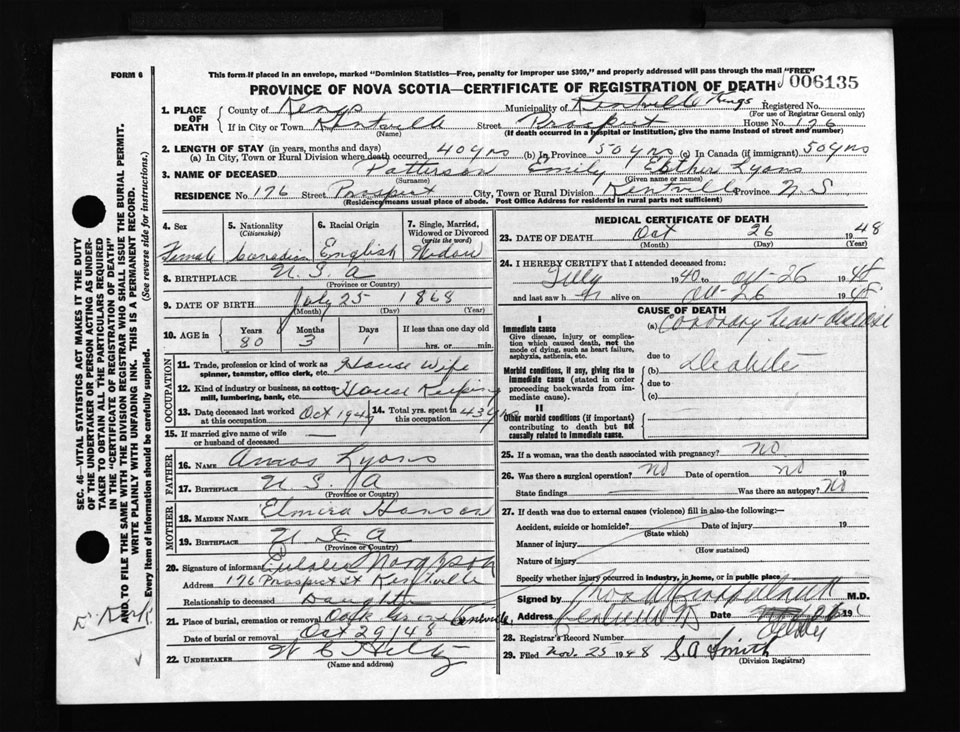 FORM 6
This form if placed in an envelope, marked "Dominion Statistics—Free, penalty for improper use $300," and properly addressed will pass through the mail "FREE"
PROVINCE OF NOVA SCOTIA—CERTIFICATE OF REGISTRATION OF DEATH
006135
1. PLACE OF DEATH
County of Kings Municipality of Kentville Kings Registered No.
(For use of Registrar General only)
If in City or Town Kentville Street Prospect House No. 176
(Name) (If death occurred in a hospital or institution, give the name instead of street and number)
2. LENGTH OF STAY (in years, months and days)
(a) In City, Town or Rural Division where death occurred 40 yrs (b) In Province 50 yrs (c) In Canada (if immigrant) 50 yrs
3. NAME OF DECEASED Patterson Emily Esther Lyons
(Surname) (Given name or names)
RESIDENCE No 176 Street Prospect City, Town or Rural Division Kentville Province N S
(Residence means usual place of abode. Post Office Address for residents in rural parts not sufficient)
4. Sex
Female
5. Nationality
(Citizenship)
Canadian
6. Racial Origin
English
7. Single, Married, Widowed or Divorced
(write the word)
Widow
8. BIRTHPLACE U. S. A
(Province or Country)
9. DATE OF BIRTH July 25 1868
(Month) (Day) (Year)
10. AGE in
Years Months Days If less than one day old
80 3 1 hrs. or min.
OCCUPATION
11. Trade, profession or kind of work as House Wife
spinner, teamster, office clerk, etc.
12. Kind of industry or business, as cotton- House Keeping
mill, lumbering, bank, etc.
13. Date deceased last worked at this occupation Oct 194
14. Total yrs. spent in this occupation 43 yrs
15. If married give name of wife
or husband of deceased —
FATHER
16. NAME Amos Lyons
17. BIRTHPLACE U. S. A
(Province or Country)
MOTHER
18. MAIDEN NAME Elmira Hanson
19. BIRTHPLACE U S A
(Province or Country)
20. Signature of informant
Address 176 Prospect St Kentville
Relationship to deceased Daughter
21. Place of burial, cremation or removal Oak Grove Kentville,
Date of burial or removal Oct 29/48
22. UNDERTAKER
(Name and address)
MEDICAL CERTIFICATE OF DEATH
23. DATE OF DEATH Oct 26 1948
(Month) (Day) (Year)
24. I HEREBY CERTIFY that I attended deceased from:
1940 to Oct-26 1948
and last saw h alive on Oct-26 1948
CAUSE OF DEATH
I
Immediate cause
Give disease, injury or complication which caused death, not the mode of dying, such as heart failure, asphyxia, asthenia, etc.
(a) Coronary heart disease
due to
Morbid conditions, if any, giving rise to immediate cause (stated in order proceeding backwards from immediate cause).
(b)
due to
(c)
II
Other morbid conditions (if important) contributing to death but not causally related to immediate cause.
25. If a woman, was the death associated with pregnancy? no.
26. Was there a surgical operation? no Date of operation no 19
State findings Was there an autopsy? No
27. If death was due to external causes (violence) fill in also the following:—
Accident, suicide or homicide? Date of injury 19
(State which)
Manner of injury
(How sustained)
Nature of injury
Specify whether injury occurred in industry, in home, or in public place.
Signed by M.D.
Address, Date 19
28. Registrar's Record Number
29. Filed Nov. 25 1948 S. A Smith
(Division Registrar)
SEC. 46—VITAL STATISTICS ACT MAKES IT THE DUTY
OF THE UNDERTAKER OR PERSON ACTING AS UNDER-
TAKER TO OBTAIN ALL THE PARTICULARS REQUIRED
IN THE "CERTIFICATE OF REGISTRATION OF DEATH"
AND TO FILE THE SAME WITH THE DIVISION REGISTRAR WHO SHALL ISSUE THE BURIAL PERMIT.
WRITE PLAINLY WITH UNFADING INK. THIS IS A PERMANENT RECORD.
Every item of information should be carefully supplied. (See reverse side for instructions.)